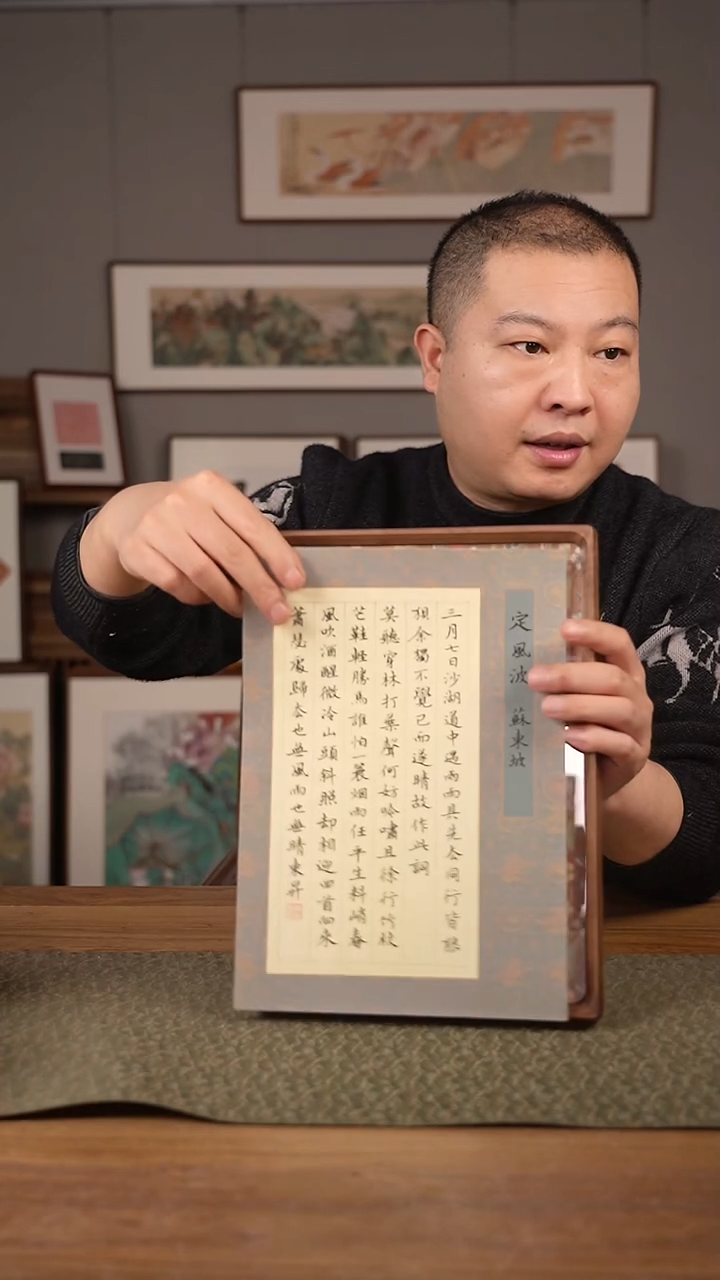 定風波 蘇東坡
三月七日沙湖道中遇雨雨具先去同行皆狼
狽余獨不覺已而遂晴故作此詞
莫聽穿林打葉聲何妨吟嘯且徐行竹杖
芒鞋輕勝馬誰怕一蓑烟雨任平生料峭春
風吹酒醒微冷山頭斜照却相迎回首向來
蕭瑟處歸去也無風雨也無晴東昇